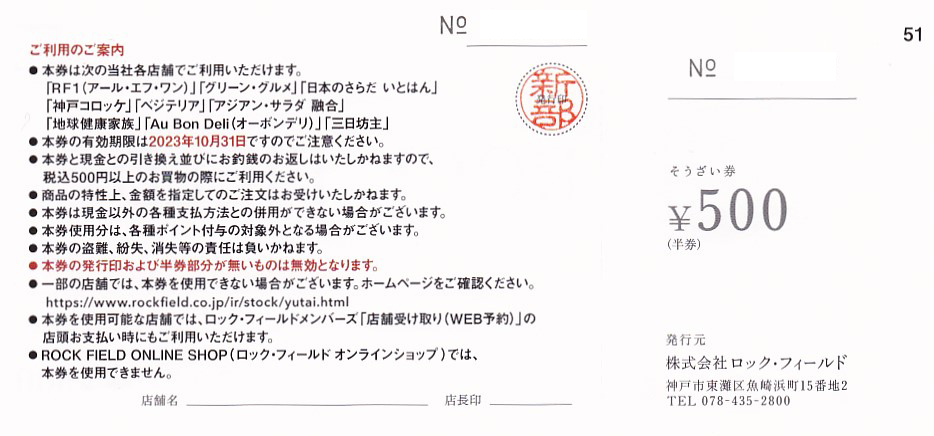 №
51
ご利用のご案内
● 本券は次の当社各店舗でご利用いただけます。
「RF1(アール・エフ・ワン)」「グリーン・グルメ」「日本のさらだ いとはん」
「神戸コロッケ」「ベジテリア」「アジアン・サラダ 融合」
「地球健康家族」「Au Bon Deli(オーボンデリ)」「三日坊主」
● 本券の有効期限は2023年10月31日ですのでご注意ください。
● 本券と現金との引き換え並びにお釣銭のお返しはいたしかねますので、
税込500円以上のお買物の際にご利用ください。
● 商品の特性上、金額を指定してのご注文はお受けいたしかねます。
● 本券は現金以外の各種支払方法との併用ができない場合がございます。
● 本券使用分は、各種ポイント付与の対象外となる場合がございます。
● 本券の盗難、紛失、消失等の責任は負いかねます。
● 本券の発行印および半券部分が無いものは無効となります。
● 一部の店舗では、本券を使用できない場合がございます。ホームページをご確認ください。
https://www.rockfield.co.jp/ir/stock/yutai.html
● 本券を使用可能な店舗では、ロック・フィールドメンバーズ「店舗受け取り(WEB予約)」の
店頭お支払い時にもご利用いただけます。
● ROCK FIELD ONLINE SHOP(ロック・フィールド オンラインショップ)では、
本券を使用できません。
店舗名
店長印
発行印
№
そうざい券
¥500
(半券)
発行元
株式会社ロック・フィールド
神戸市東灘区魚崎浜町15番地2
TEL 078-435-2800